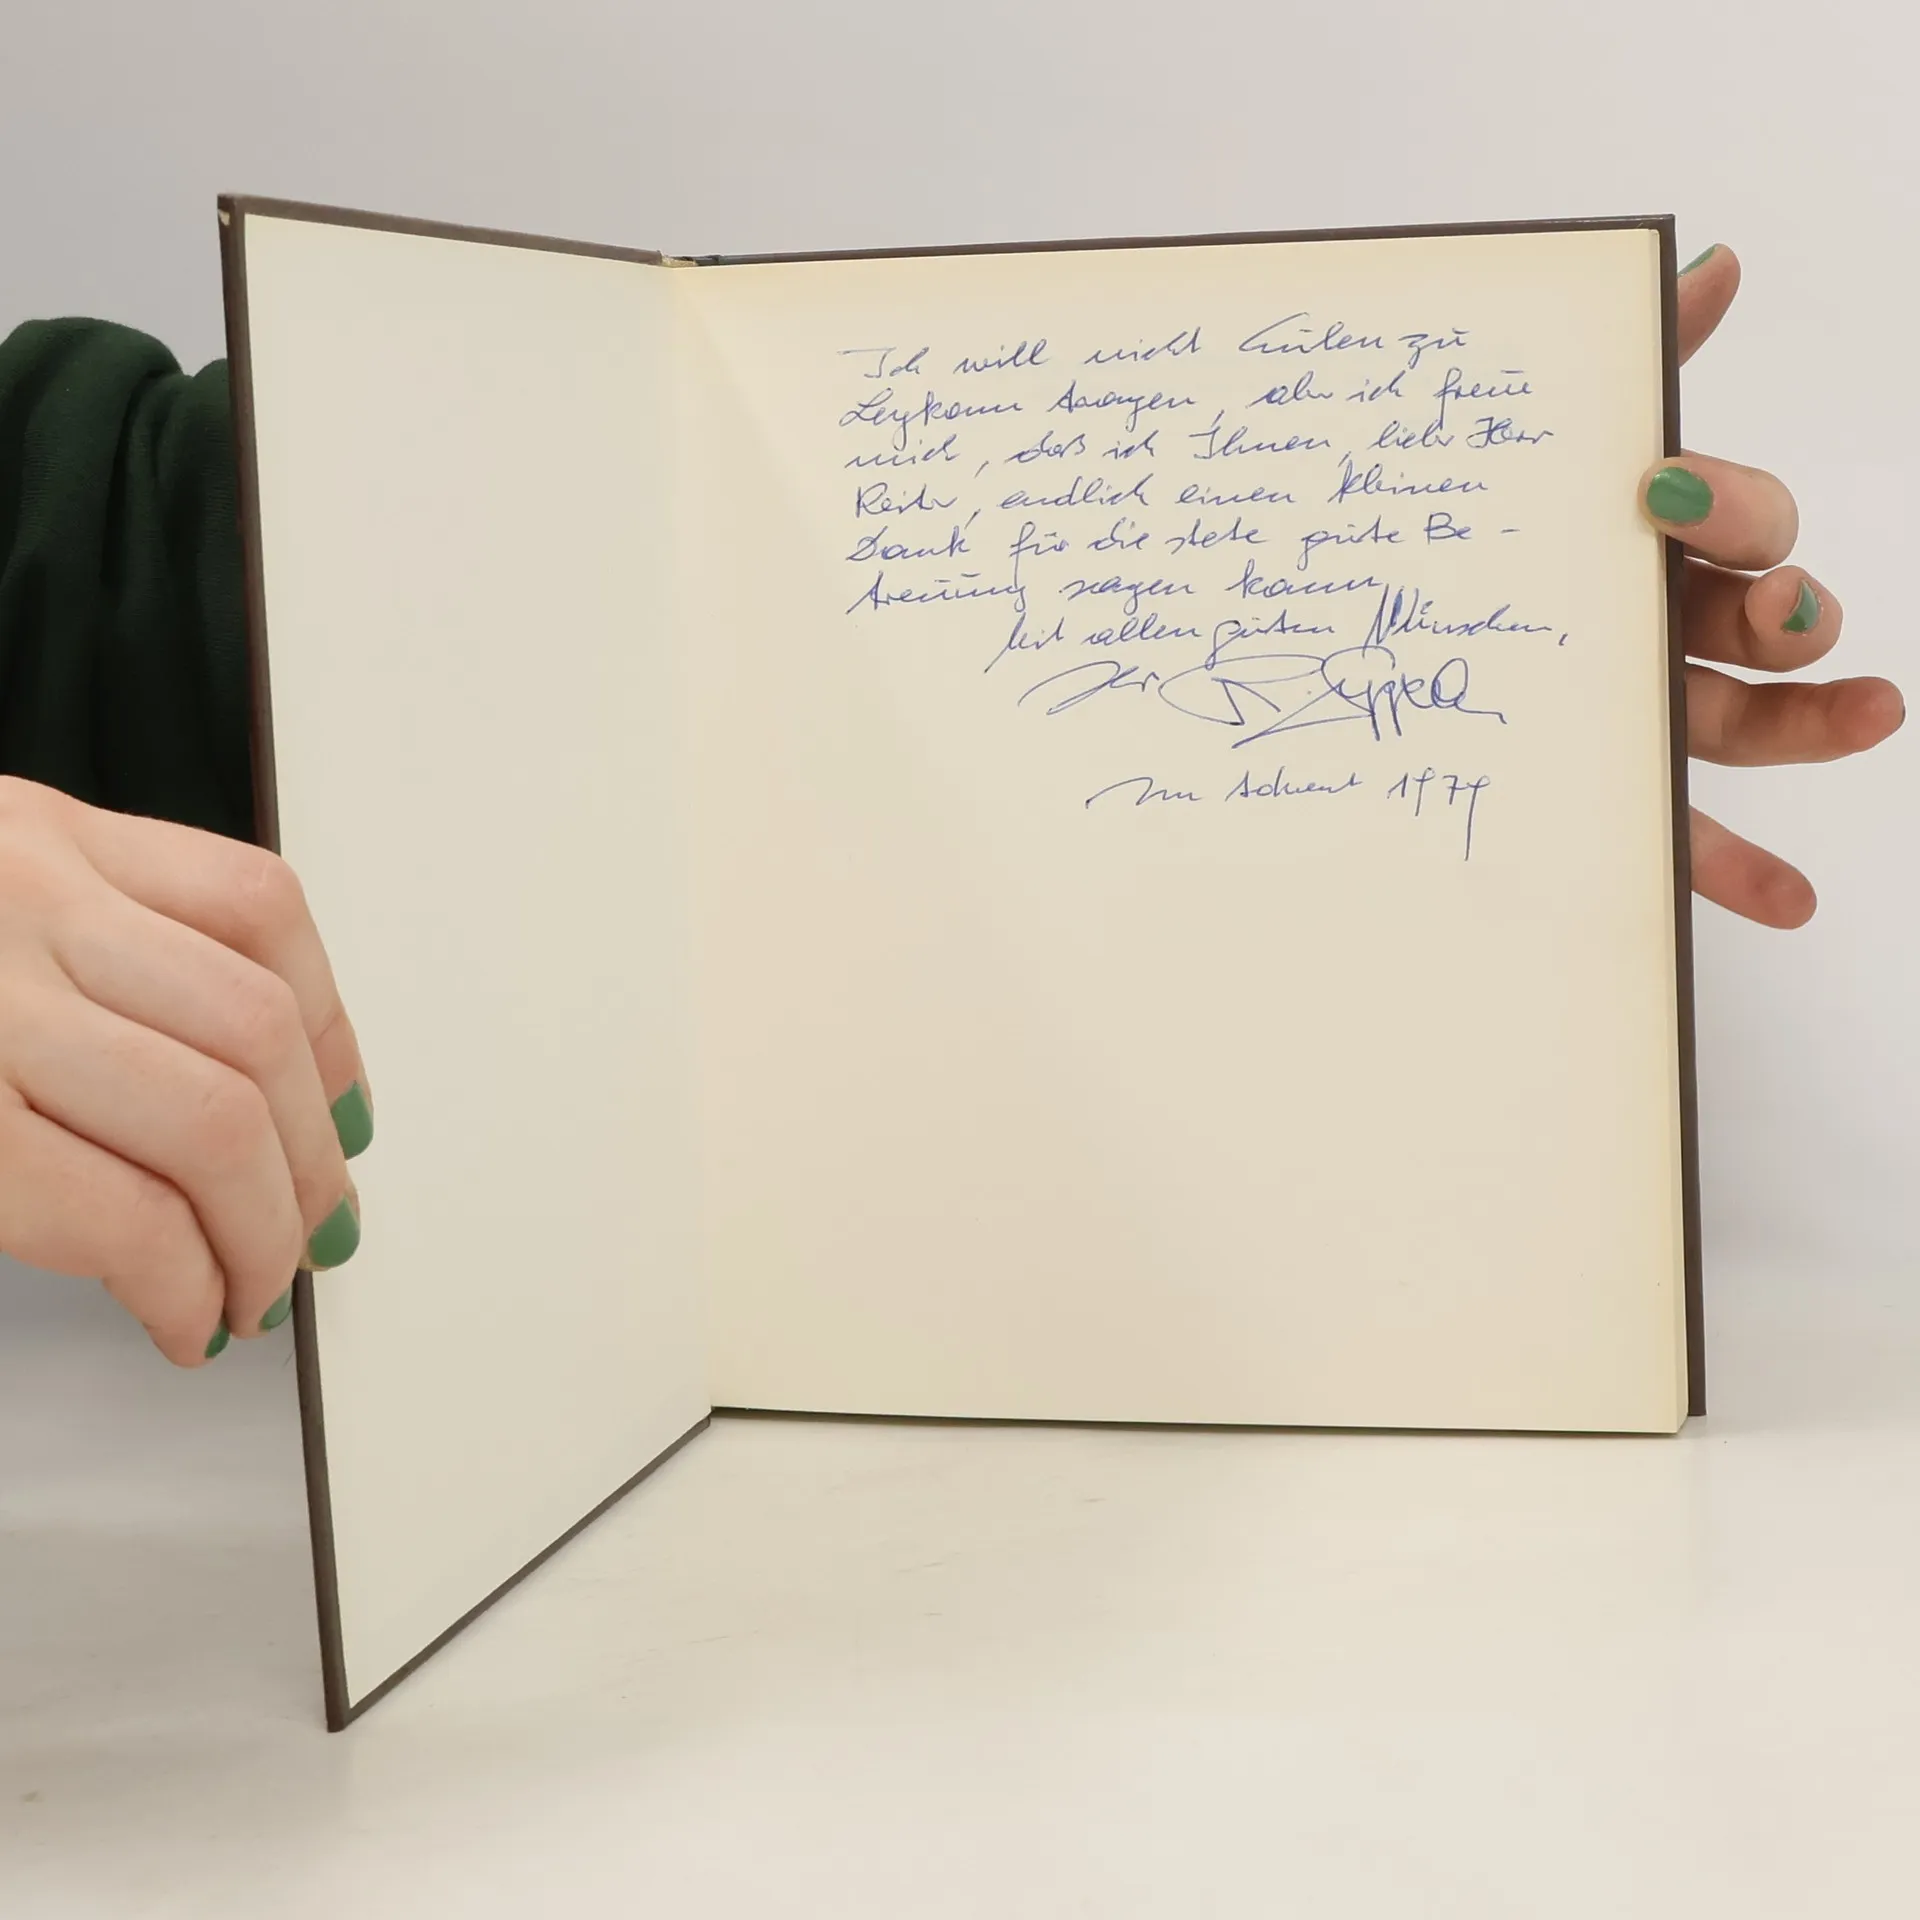 Ich will nicht Eulen zu
Leykam tragen, aber ich freue
mich, daß ich Ihnen, lieber Herr
Reiter, endlich einen kleinen
Dank für die stete gute Be-
treuung sagen kann.
Mit allen guten Wünschen,
Ihr
Im Advent 1979